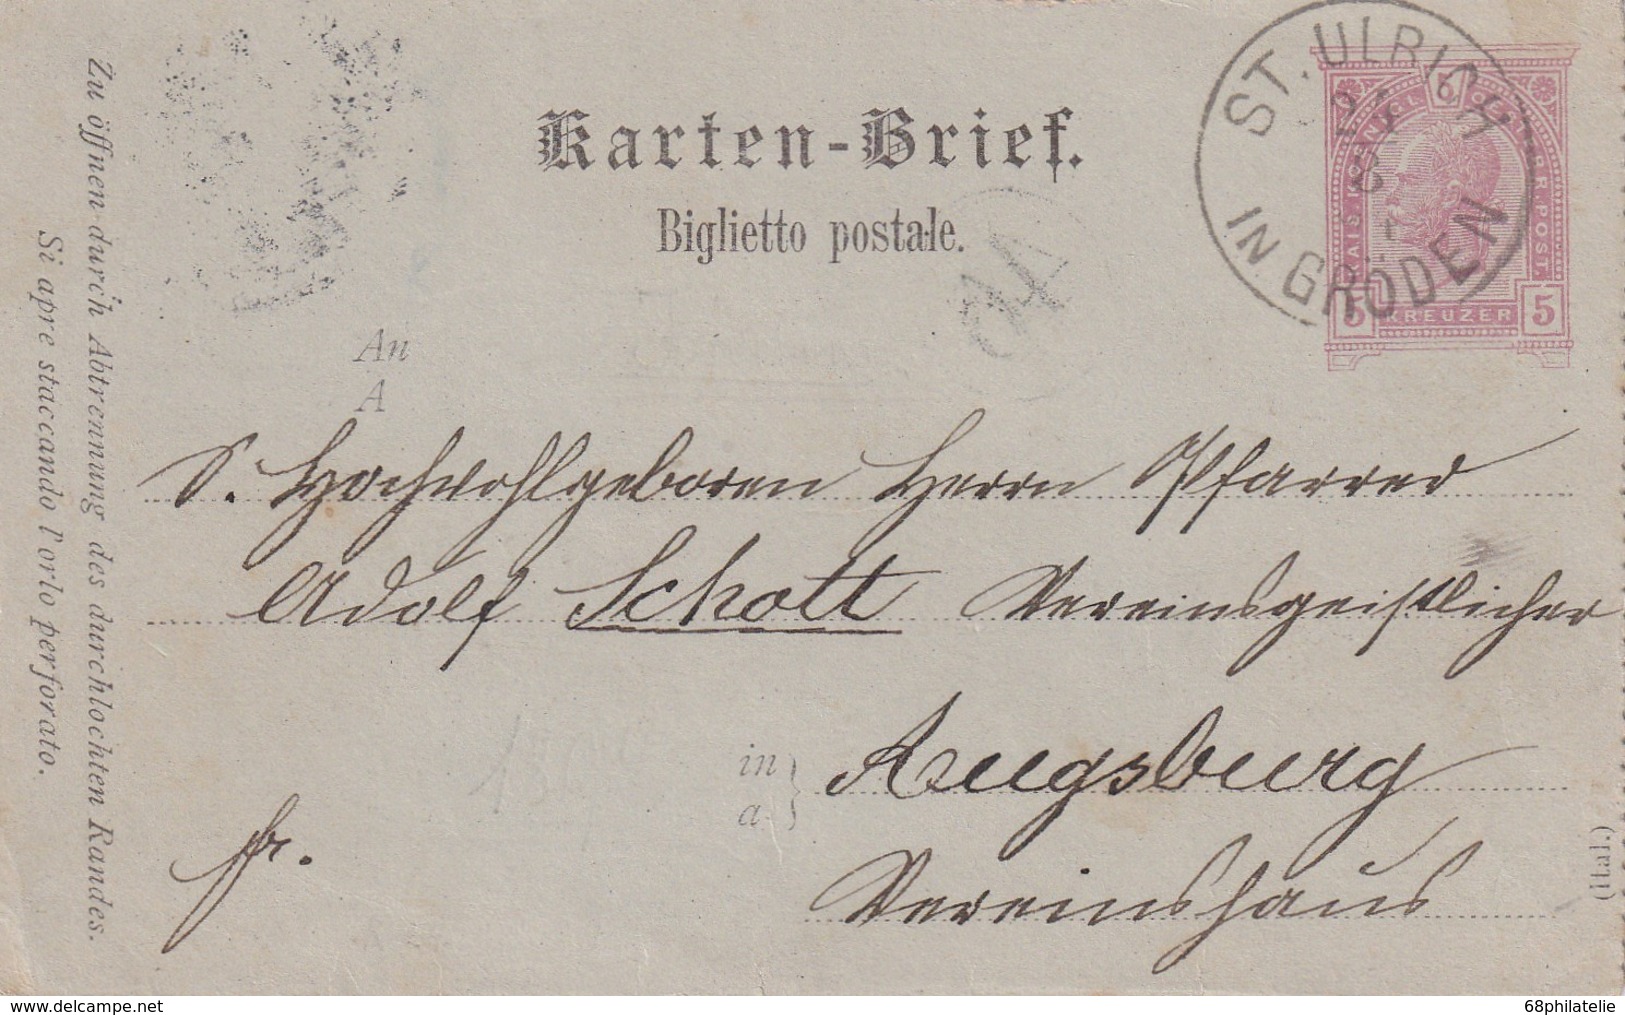 Karten-Brief.
Biglietto postale.
ST. ULRICH
IN GRÖDEN
KREUZER
5
5
Zu öffnen durch Abtrennung des durchlochten Randes.
Si apre staccando l'orlo perforato.
An
A
S. Hochwohlgeboren Herrn Pfarrer
Adolf Schott Vereinsgeistlicher
in
a
Augsburg
Vereinshaus
fr.
(Ital.)
www.delcampe.net
68philatelie